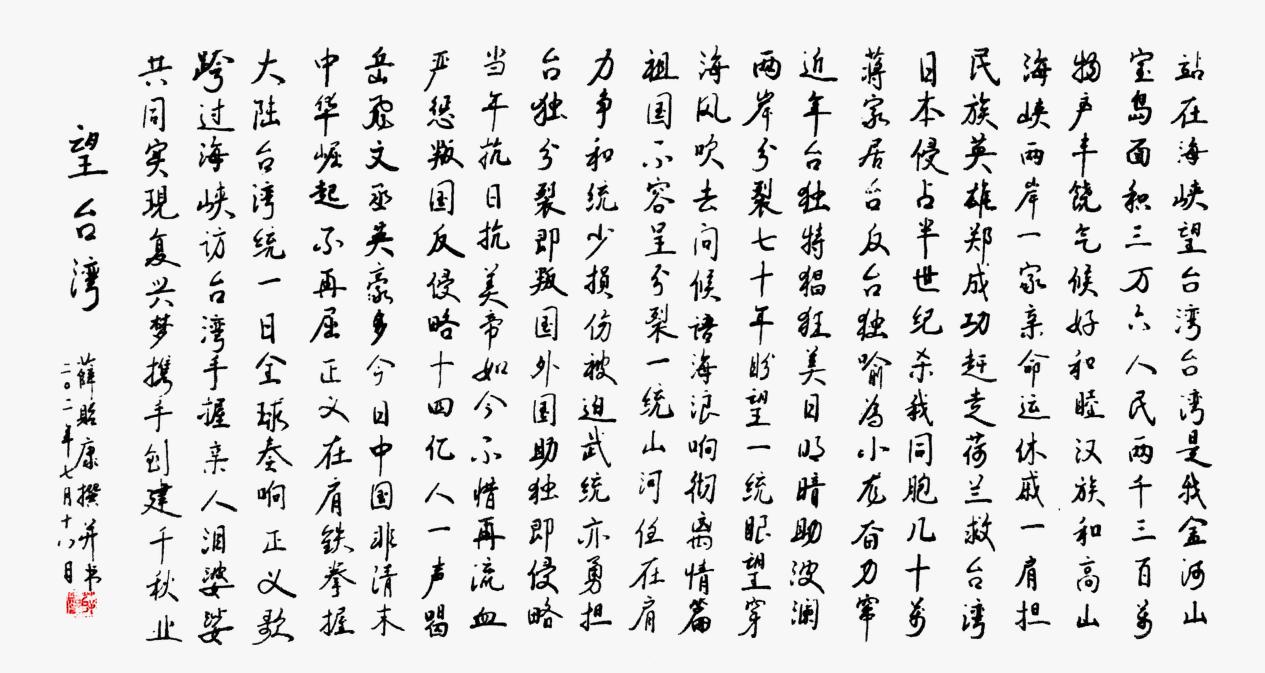 站在海峡望台湾台湾是我金河山
宝岛面积三万六人民两千三百万
物产丰饶气候好和睦汉族和高山
海峡两岸一家亲命运休戚一肩担
民族英雄郑成功赶走荷兰救台湾
日本侵占半世纪杀我同胞几十万
蒋家居台反台独喻为小龙奋力窜
近年台独特猖狂美日明暗助波澜
两岸分裂七十年盼望一统眼望穿
海风吹去问候语海浪响彻离情篇
祖国不容呈分裂一统山河任在肩
力争和统少损伤被迫武统亦勇担
台独分裂即叛国外国助独即侵略
当年抗日抗美帝如今不惜再流血
严惩叛国反侵略十四亿人一声喝
岳飞文丞英豪多今日中国非清末
中华崛起不再屈正义在肩铁拳握
大陆台湾统一日全球奏响正义歌
跨过海峡访台湾手握亲人泪婆娑
共同实现复兴梦携手创建千秋业
望台湾
薛贻康撰并书
二〇二一年七月十八日